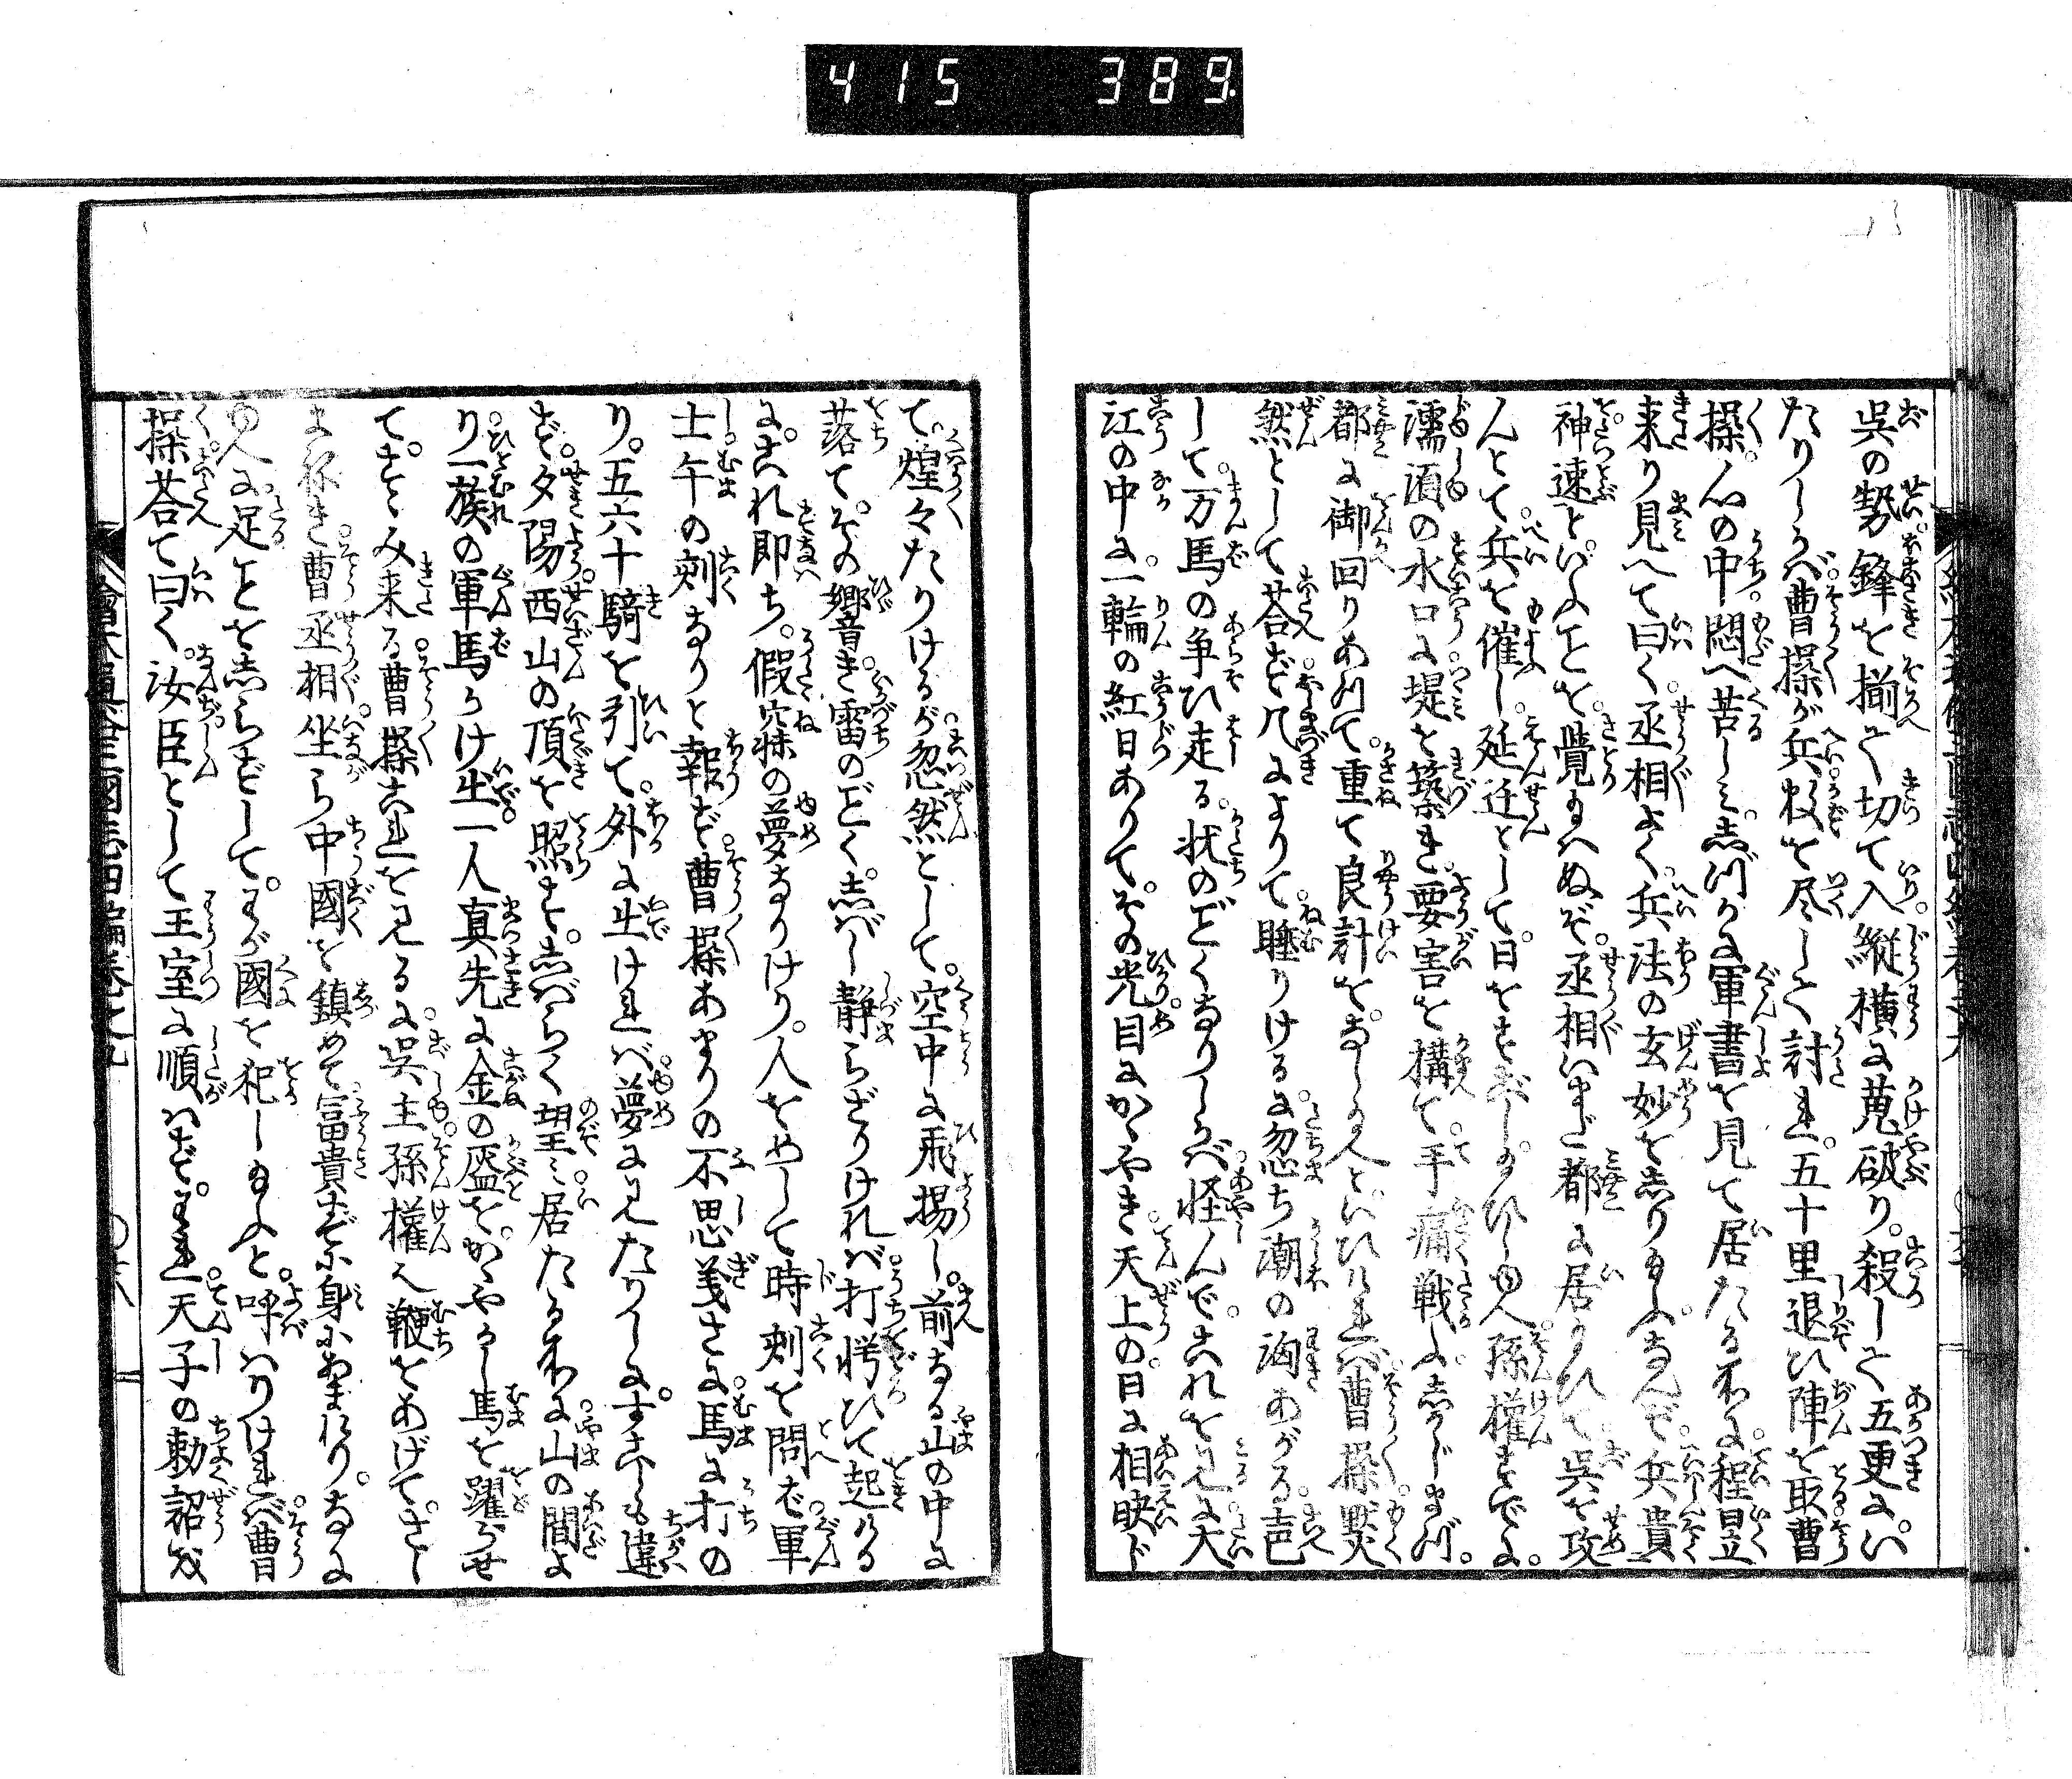 415 389
呉の勢鋒を揃て切て入縦横に蒐破り。殺して五更に。い
たりしかバ曹操が兵数を尽して討れ。五十里退ひ陣を取曹
操。心の中悶へ苦しミ。志づかに軍書を見て居たる所に程昱
来り見へて曰く。丞相よく。兵法の玄妙を志り玉ふ。なんぞ。兵貴
神速と。いふことを。覚玉ハぬぞ。丞相いまだ都に居玉ひて呉を攻
んとて兵を催し。延迁として。日をすごし玉ひしゆへ。孫権すでに。
濡須の水口に堤を築き。要害を構て。手痛戦ふ。志かじまづ。
都に御回りあつて。重て良計を。なし玉へといひけれバ曹操黙
然として答ず几によりて睡りける。に忽ち潮の洶あがる声
して。万馬の争ひ走る。状のごくなりしかバ怪んで。これを見に大
江の中に。一輪の紅日ありて。その光目にかゝやき天上の日に相映じ
て。煌々たりけるが忽然として。空中に飛揚し。前なる山の中に
落て。その響き雷のごく。志バし静らざりけれバ打愕ひて起ける
に。これ即ち。假寐の夢なりけり。人をめして時刻を問ば軍
士午の刻なりと報ず曹操あまりの不思議さに馬に打の
り。五六十騎を引て。外に出けれバ夢に見たりしに。すこしも違
ず。夕陽西山の頂を照す。志バらく望ミ居たる所に山の間よ
り一族の軍馬かけ出一人真先に金の盔を。かゞやかし馬を躍らせ
て。すゝみ来る曹操これを見るに。呉主孫権也鞭をあげて。さし
まねき。曹丞相坐ら中國を鎮めて富貴すでに身にあまれり。なに
ゆへに足ことを志らずして。わが國を犯し玉ふと。呼はりけれバ曹
操荅て曰く。汝臣として王室に順はず。われ天子の勅詔
繪本通俗三國志四編巻之九